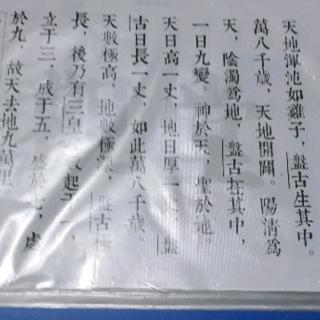 天地渾沌如雞子，盤古生其中，
萬八千歲，天地開闢。陽清為
天，陰濁為地，盤古在其中，
一日九變。神於天，聖於地。
天日高一丈，地日厚一丈，盤
古日長一丈，如此萬八千歲。
天數極高，地數極深，盤古極
長，後乃有三皇。數起于一，
立于三，成于五，盛於七，處
於九，故天去地九萬里。